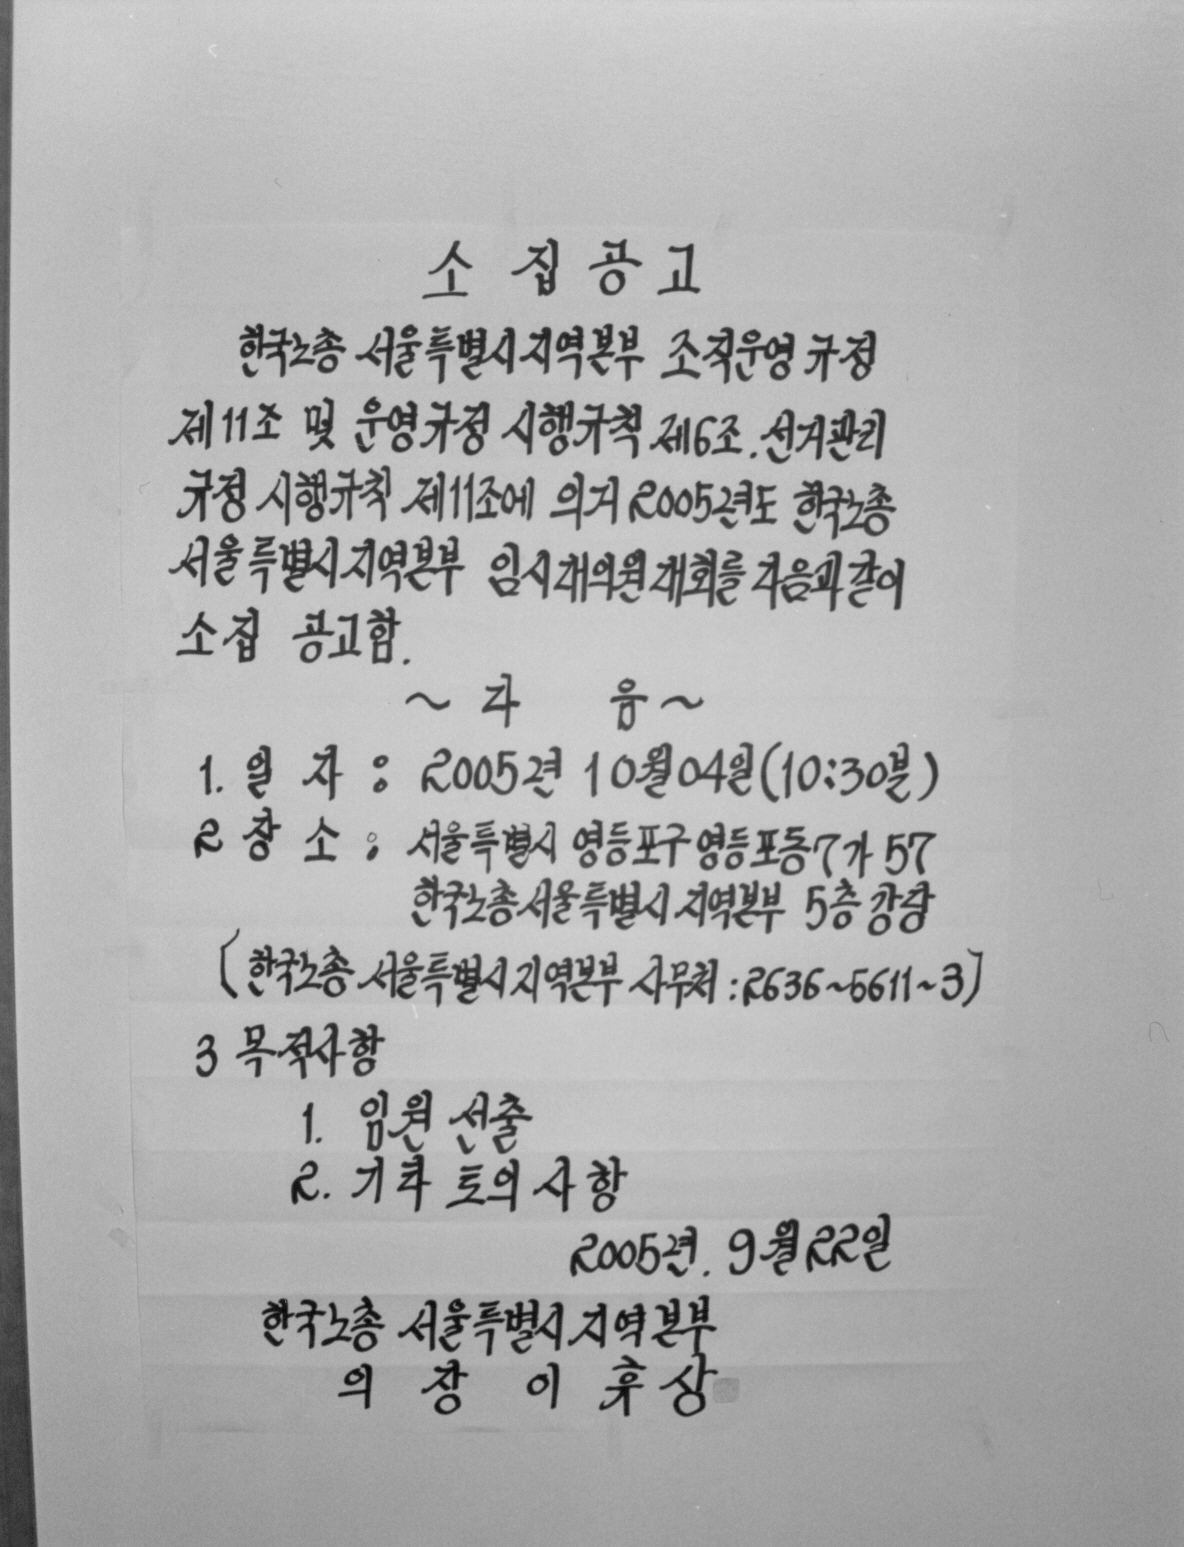 소 집 공 고
한국노총 서울특별시지역본부 조직운영 규정
제11조 및 운영규정 시행규칙 제6조. 선거관리
규정 시행규칙 제11조에 의거 2005년도 한국노총
서울특별시지역본부 임시대의원대회를 다음과 같이
소집 공고함.
~ 다 음 ~
1. 일 자 : 2005년 10월 04일(10:30분)
2 장 소 : 서울특별시 영등포구 영등포동7가 57
한국노총서울특별시 지역본부 5층 강당
(한국노총 서울특별시지역본부 사무처 : 2636~5611~3)
3 목적사항
1. 임원 선출
2. 기타 토의 사항
2005년. 9월 22일
한국노총 서울특별시지역본부
의 장 이 휴 상